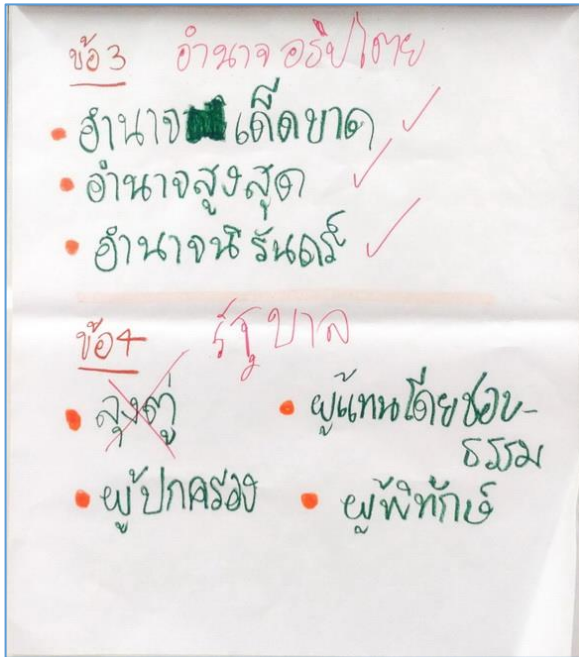 ข้อ 3 อำนาจอธิปไตย
• อำนาจเด็ดขาด ✓
• อำนาจสูงสุด ✓
• อำนาจนิรันดร์ ✓
ข้อ 4 รัฐบาล
• ลุงตู่ • ผู้แทนโดยชอบ-
ธรรม
• ผู้ปกครอง • ผู้พิทักษ์